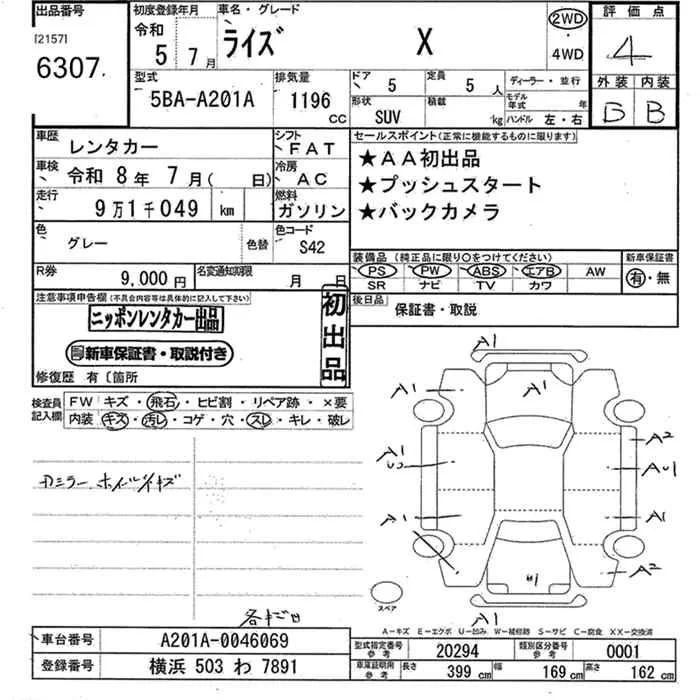 出品番号
[2157]
6307
初度登録年月
令和
5 7月
車名・グレード
ライズ X
2WD
・
4WD
評価点
4
外装 内装
B
型式
5BA-A201A
排気量
1196
CC
ドア
5
定員
5人
形状
SUV
積載
kg
ディーラー・並行
モデル
年式 年
ハンドル 左・右
車歴
レンタカー
シフト
FAT
車検
令和 8年 7月( 日)
冷房
AC
走行
9万1千049 km
燃料
ガソリン
色
グレー
色替
色コード
S42
R券
9,000円
名変通知期限
月 日
セールスポイント(正常に機能するものに限ります)
★AA初出品
★プッシュスタート
★バックカメラ
装備品(純正品に限り〇をつけてください)
新車保証書
PS PW ABS エアB AW
SR ナビ TV カワ
有・無
後日品
保証書・取説
注意事項申告欄(不具合内容等は具体的に記入して下さい)
ニッポンレンタカー出品
新車保証書・取説付き
初出品
修復歴 有〔箇所
検査員
記入欄
FW キズ・飛石・ヒビ割・リペア跡・×要
内装 キズ・汚レ・コゲ・穴・スレ・キレ・破レ
カミラー ホイルイキズ
A1
A1
A1
A1
A2
AU1
A1
A1
A2
U1
A1
スペア
A-キズ E-エクボ U-凹み W-補修跡 S-サビ C-腐食 XX-交換済
車台番号
A201A-0046069
登録番号
横浜 503 わ 7891
型式指定番号
参考
20294
類別区分番号
参考
0001
車庫証明用
参考
長さ
399 cm
幅
169 cm
高さ
162 cm